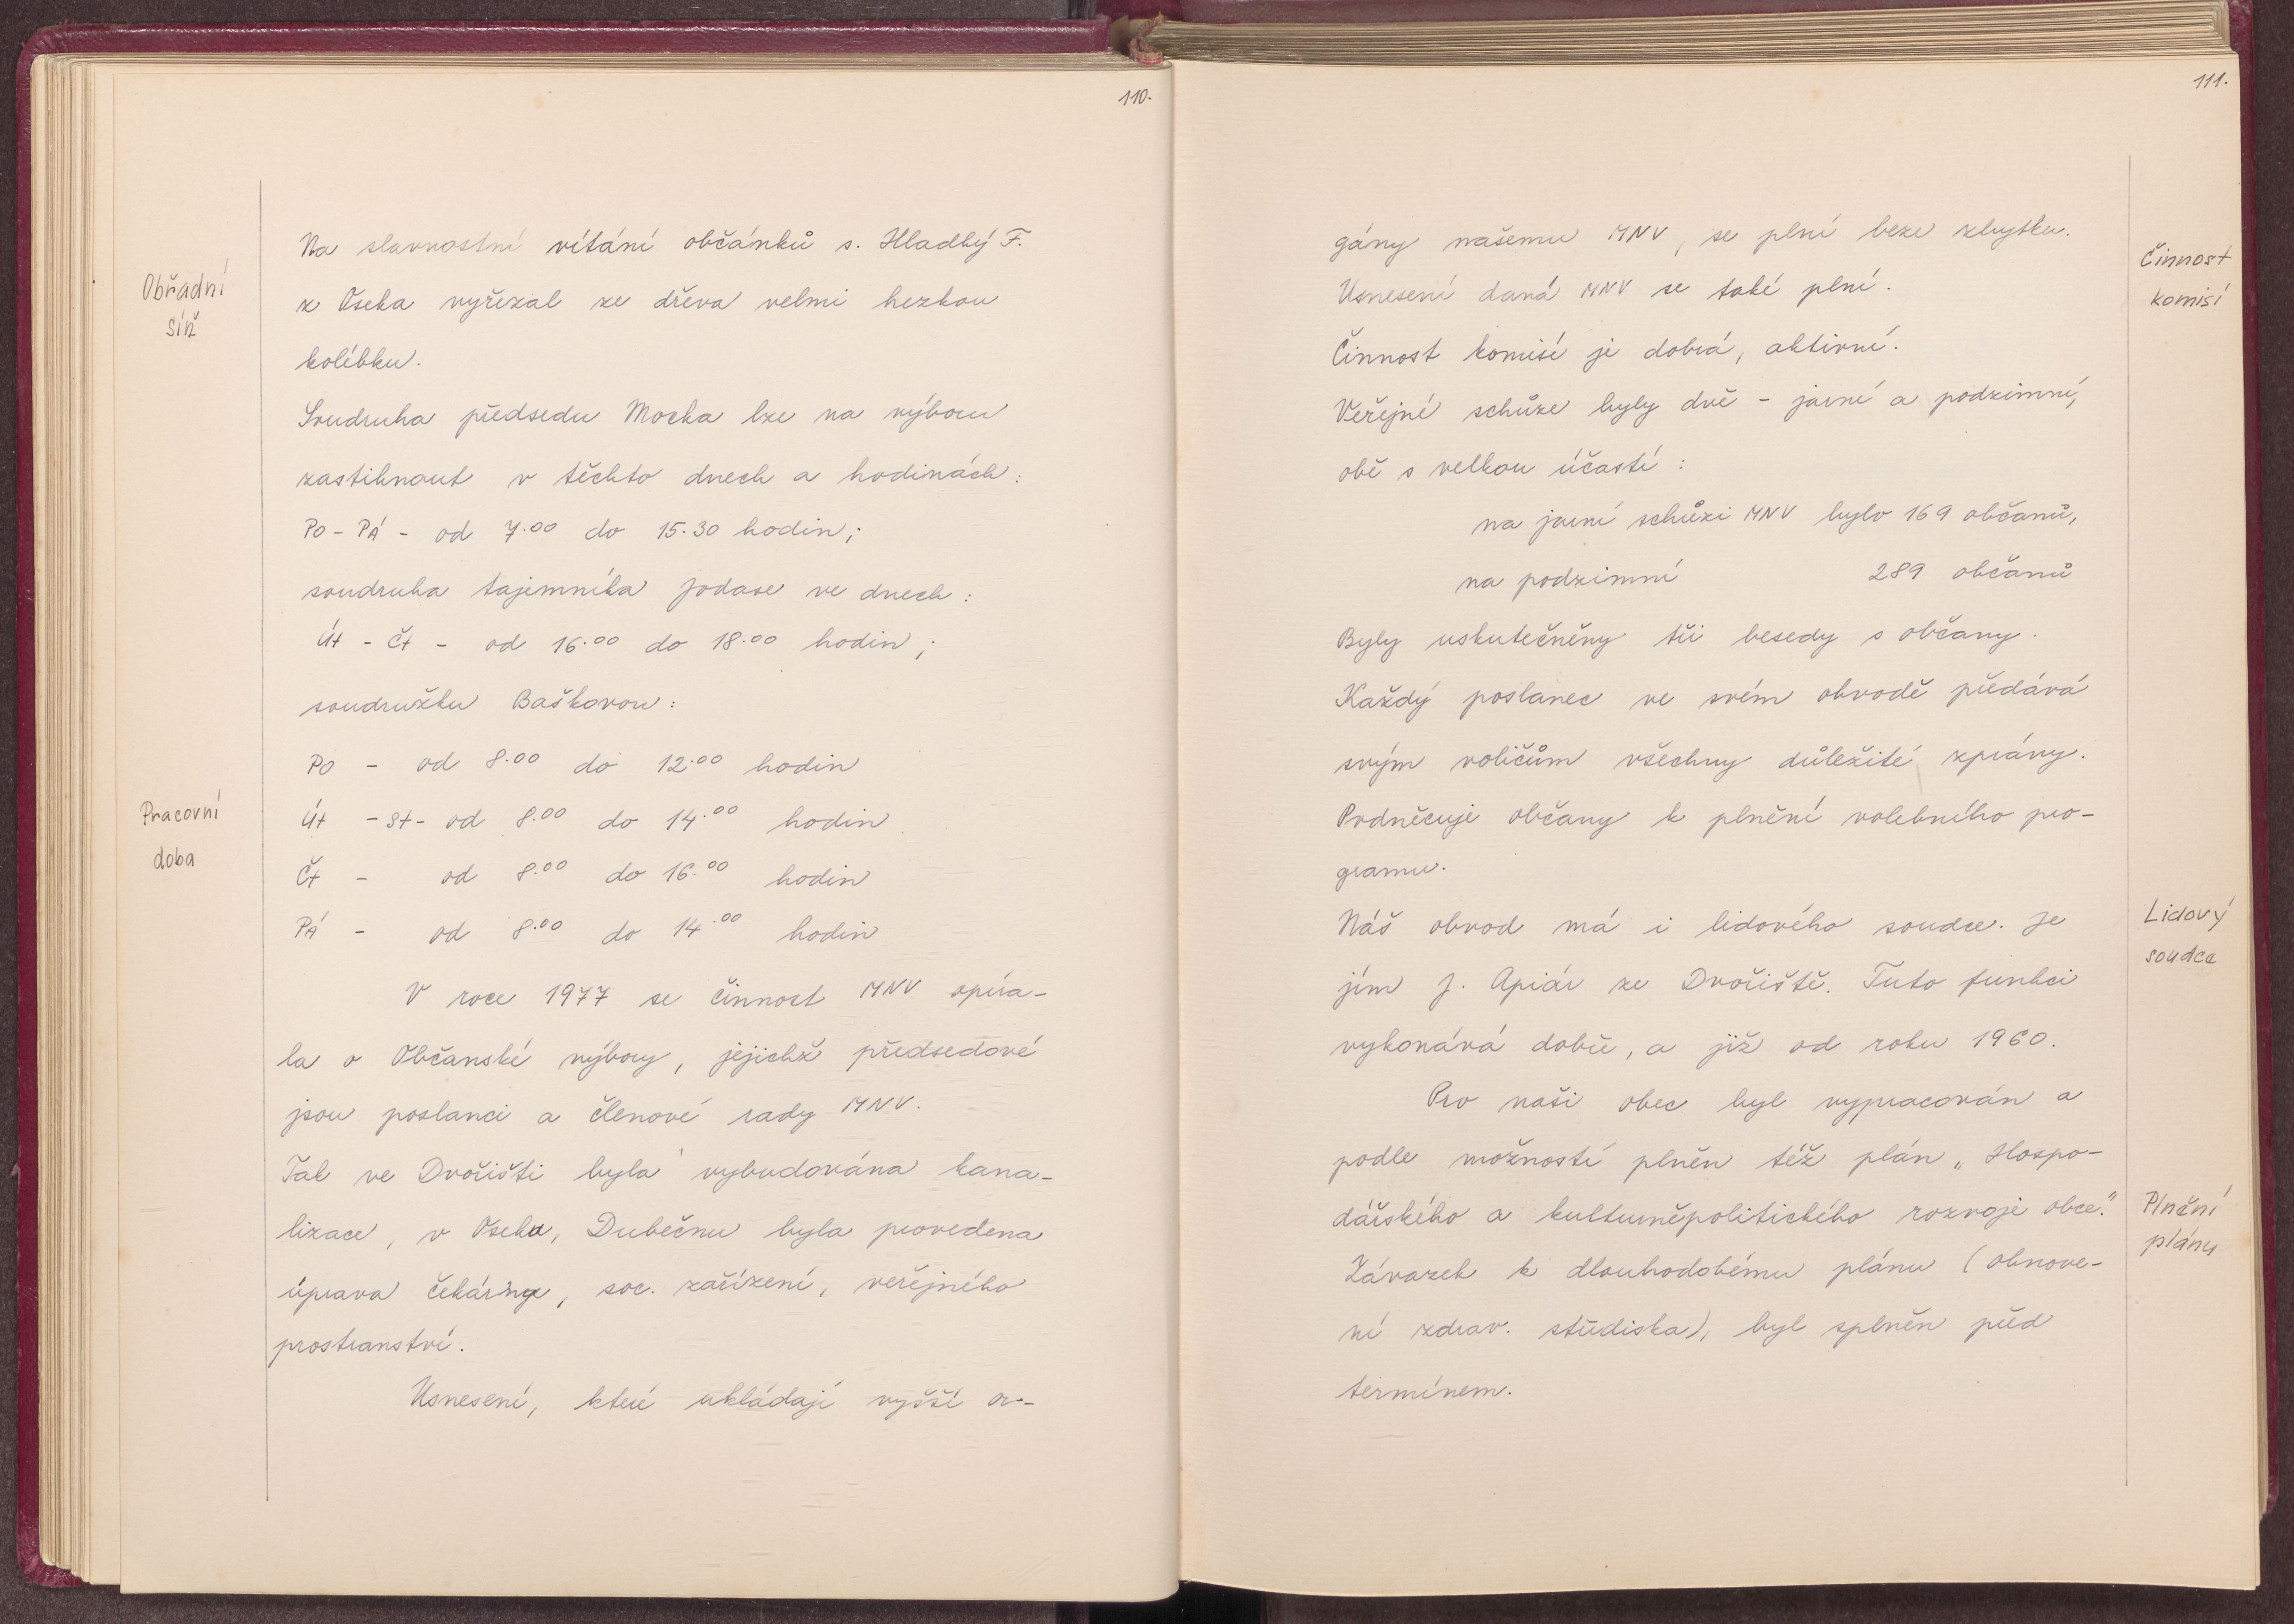 110.
Obřadní
síň
Na slavnostní vítání občánků s. Hladký F.
z Oseka vyřezal ze dřeva velmi hezkou
kolébku.
Soudruha předsedu Mocka lze na výboru
zastihnout v těchto dnech a hodinách:
Po - Pá - od 7.00 do 15.30 hodin;
soudruha tajemníka Jodase ve dnech:
Út - Čt - od 16.00 do 18.00 hodin;
soudružku Baškovou:
Po - od 8.00 do 12.00 hodin
Pracovní
doba
Út - St - od 8.00 do 14.00 hodin
Čt - od 8.00 do 16.00 hodin
Pá - od 8.00 do 14.00 hodin
V roce 1977 se činnost MNV opíra-
la o Občanské výbory, jejichž předsedové
jsou poslanci a členové rady MNV.
Tak ve Dvořišti byla vybudována kana-
lizace, v Oseku, Dubečnu byla provedena
úprava čekárny, soc. zařízení, veřejného
prostranství.
Usnesení, které ukládají vyšší or-
111.
gány našemu MNV, se plní beze zbytku.
Činnost
komisí
Usnesení daná MNV se také plní.
Činnost komisí je dobrá, aktivní.
Veřejné schůze byly dvě - jarní a podzimní,
obě s velkou účastí:
na jarní schůzi MNV bylo 169 občanů,
na podzimní 289 občanů
Byly uskutečněny tři besedy s občany.
Každý poslanec ve svém obvodě předává
svým voličům všechny důležité zprávy.
Podněcuje občany k plnění volebního pro-
gramu.
Lidový
soudce
Náš obvod má i lidového soudce. Je
jím J. Apiár ze Dvořiště. Tuto funkci
vykonává dobře, a již od roku 1960.
Pro naši obec byl vypracován a
podle možností plněn též plán „Hospo-
dářského a kulturněpolitického rozvoje obce."
Plnění
plánu
Závazek k dlouhodobému plánu (obnove-
ní zdrav. střediska), byl splněn před
termínem.